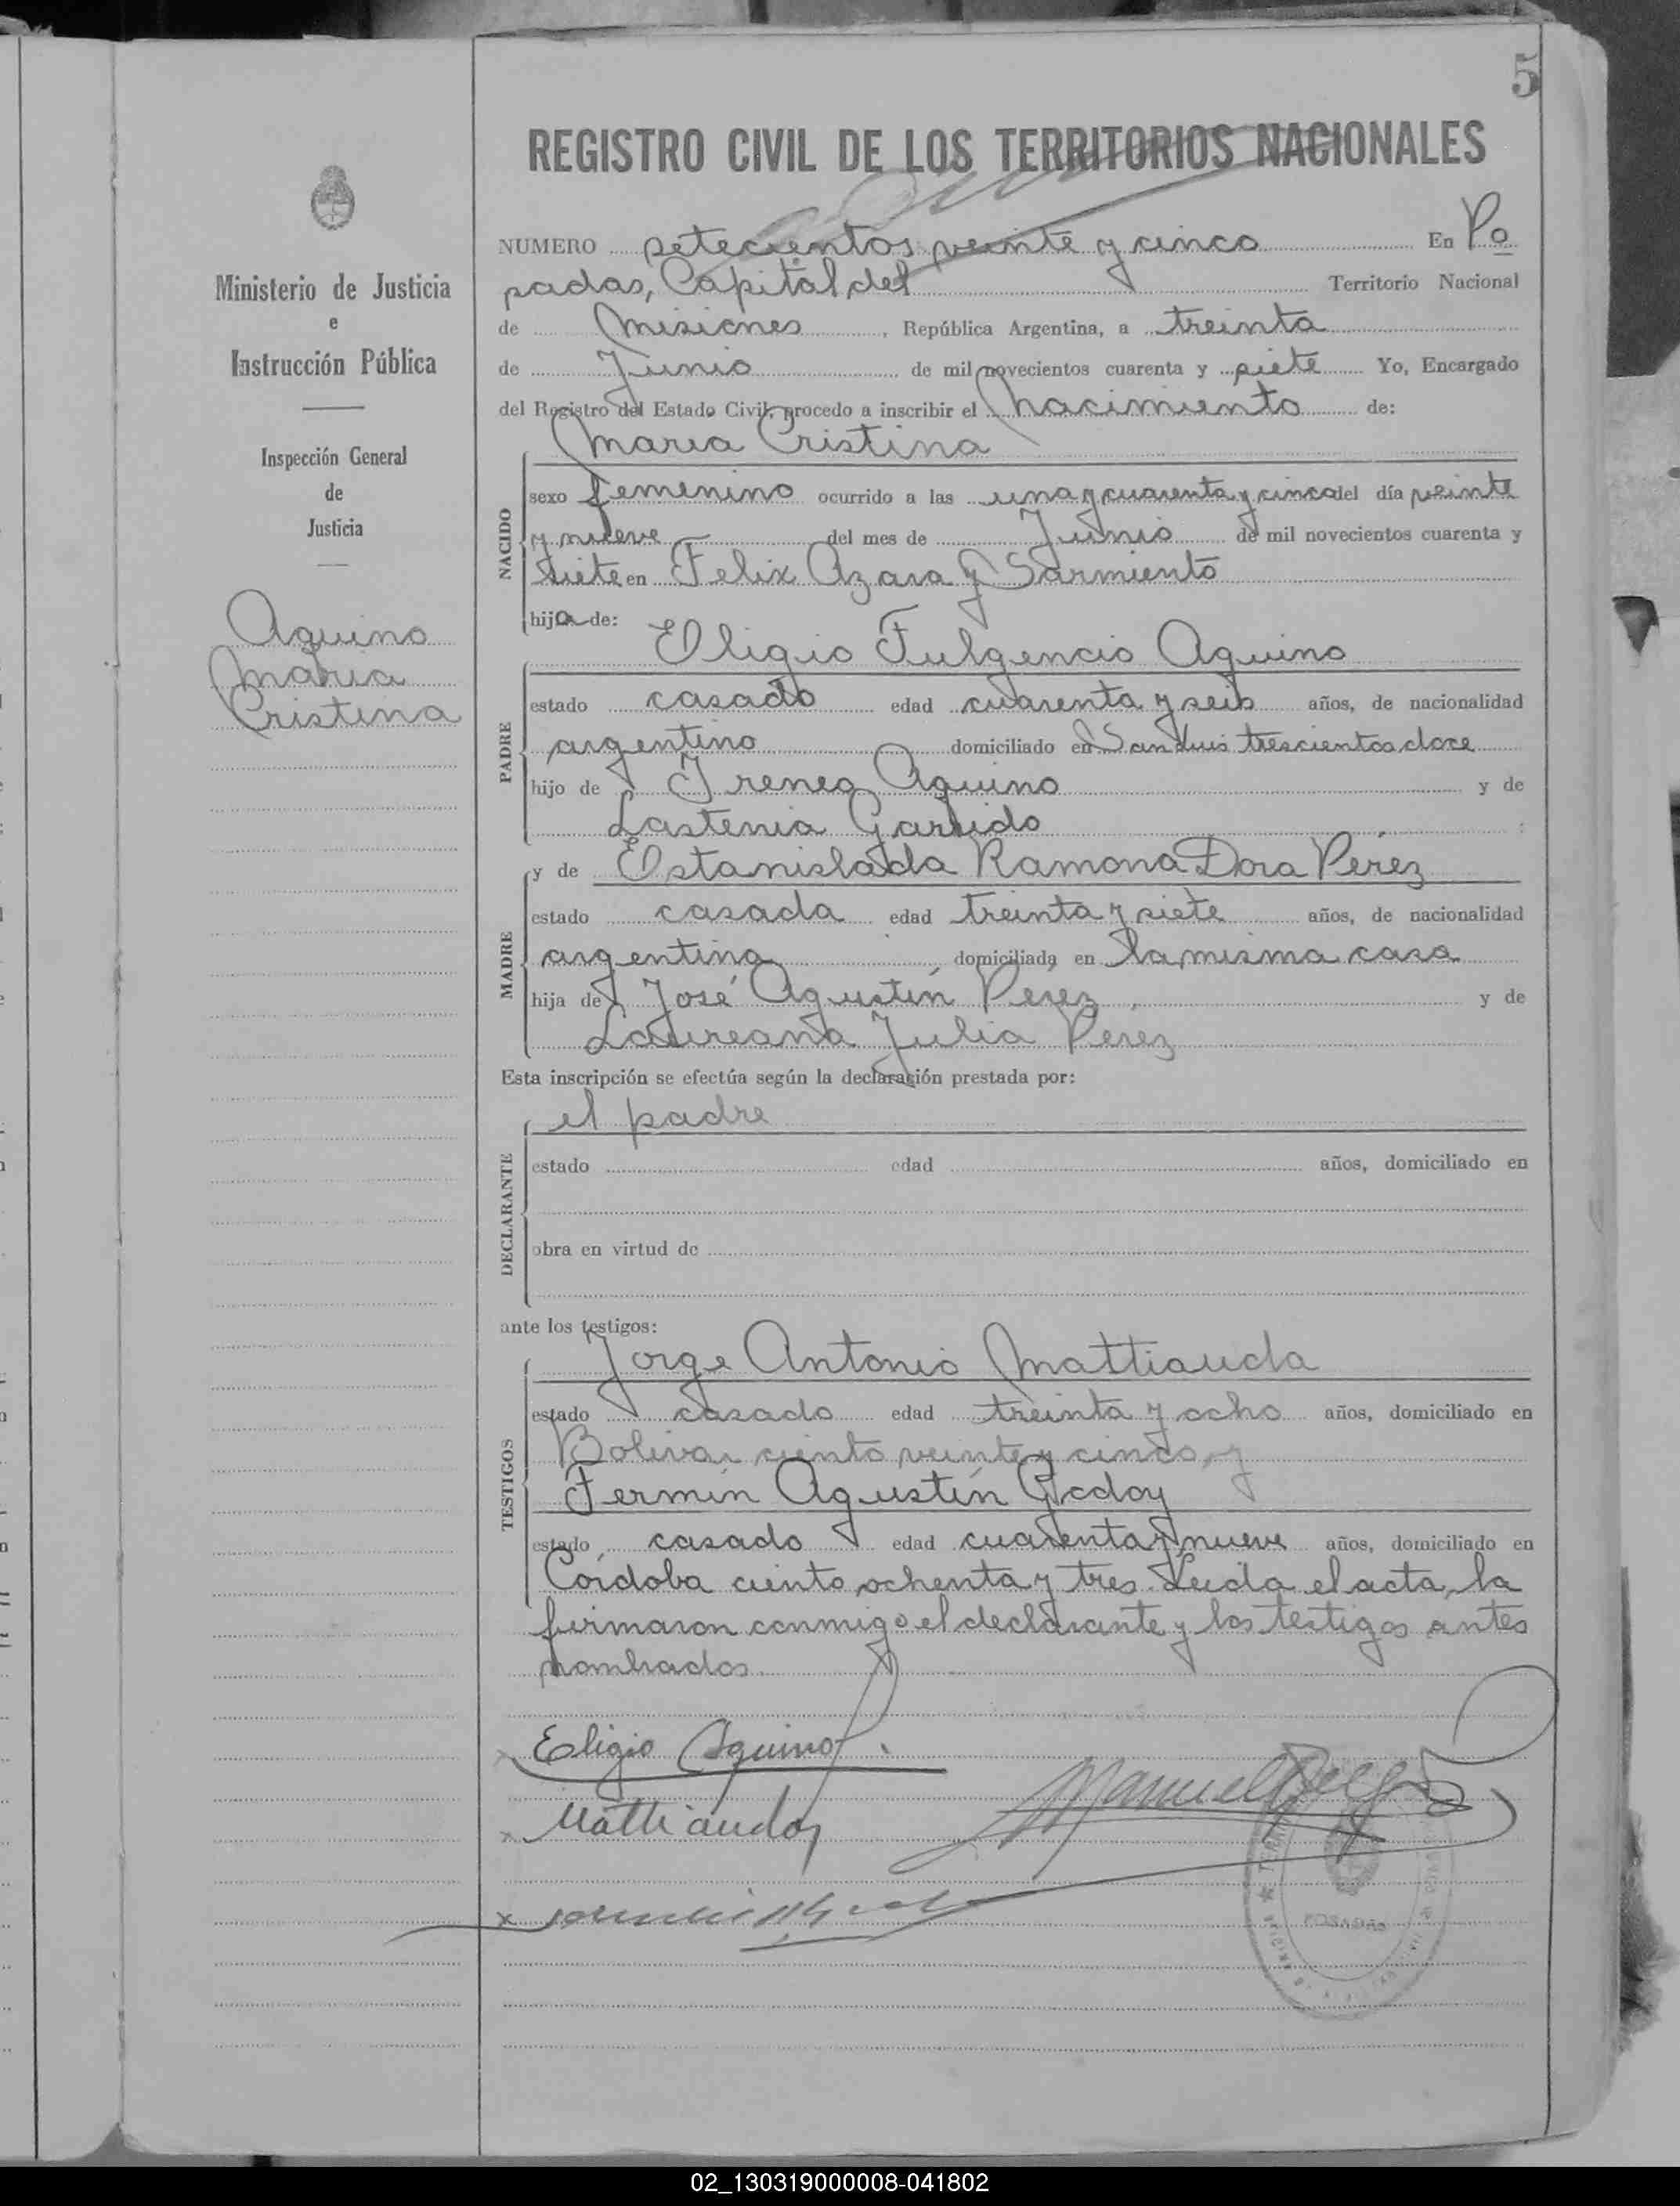 5
REGISTRO CIVIL DE LOS TERRITORIOS NACIONALES
NUMERO setecientos veinte y cinco En Po
sadas, Capital del Territorio Nacional
de Misiones, República Argentina, a treinta
de Junio de mil novecientos cuarenta y siete Yo, Encargado
del Registro del Estado Civil, procedo a inscribir el Nacimiento de:
Maria Cristina
NACIDO
sexo femenino ocurrido a las una y cuarenta y cinco del día veinte
y nueve del mes de Junio de mil novecientos cuarenta y
siete en Felix Azara y Sarmiento
hija de:
Eligio Fulgencio Aquino
PADRE
estado casado edad cuarenta y seis años, de nacionalidad
argentino domiciliado en San Luis trescientos doce
hijo de Ireneo Aquino y de
Lastenia Garrido :
y de Estanislada Ramona Dora Pérez
MADRE
estado casada edad treinta y siete años, de nacionalidad
argentina domiciliada en la misma casa
hija de José Agustín Perez, y de
Laureana Julia Perez
Esta inscripción se efectúa según la declaración prestada por:
el padre
DECLARANTE
estado edad años, domiciliado en
obra en virtud de
ante los testigos:
Jorge Antonio Mattiauda
TESTIGOS
estado casado edad treinta y ocho años, domiciliado en
Bolivar ciento veinte y cinco, y
Fermín Agustín Godoy
estado casado edad cuarenta y nueve años, domiciliado en
Córdoba ciento ochenta y tres. Leida el acta, la
firmaron conmigo el declarante y los testigos antes
nombrados
x Eligio Aquino.
x Mattiauda
Manuel
x
POSADAS
Ministerio de Justicia
e
Instrucción Pública
Inspección General
de
Justicia
Aquino
Maria
Cristina
02_130319000008-041802